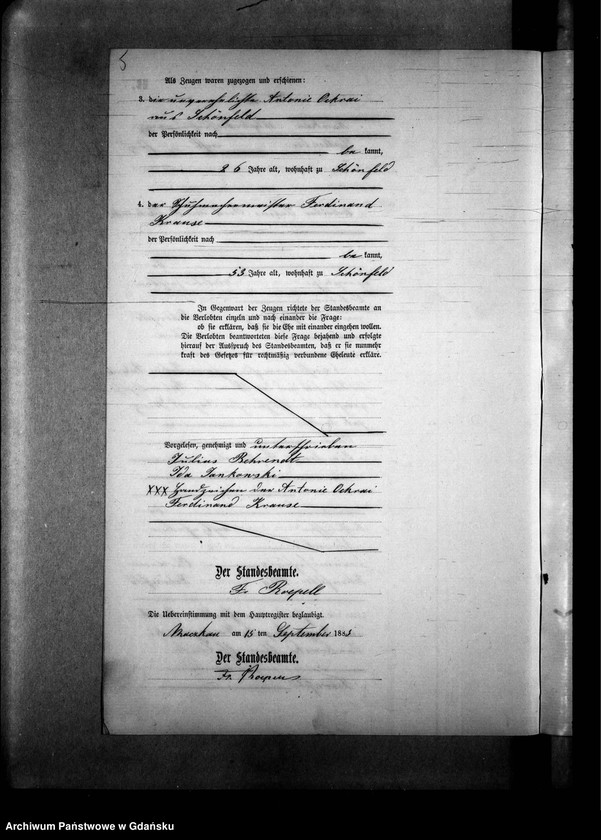 5
Als Zeugen waren zugezogen und erschienen:
3. die unverehelichte Antonie Ockrai
aus Schönfeld
der Persönlichkeit nach
be kannt,
26 Jahre alt, wohnhaft zu Schönfeld
4. der Schuhmachermeister Ferdinand
Krause
der Persönlichkeit nach
be kannt,
53 Jahre alt, wohnhaft zu Schönfeld
In Gegenwart der Zeugen richtete der Standesbeamte an
die Verlobten einzeln und nach einander die Frage:
ob sie erklären, daß sie die Ehe mit einander eingehen wollen.
Die Verlobten beantworteten diese Frage bejahend und erfolgte
hierauf der Ausspruch des Standesbeamten, daß er sie nunmehr
kraft des Gesetzes für rechtmäßig verbundene Eheleute erkläre.
Vorgelesen, genehmigt und unterschrieben
Julius Behrendt
Ida Jankowski
XXX Handzeichen der Antonie Ockrai
Ferdinand Krause
Der Standesbeamte.
Fr. Roepell
Die Uebereinstimmung mit dem Hauptregister beglaubigt.
am 15 ten September 1883
Der Standesbeamte.
Fr. Roepell
Archiwum Państwowe w Gdańsku